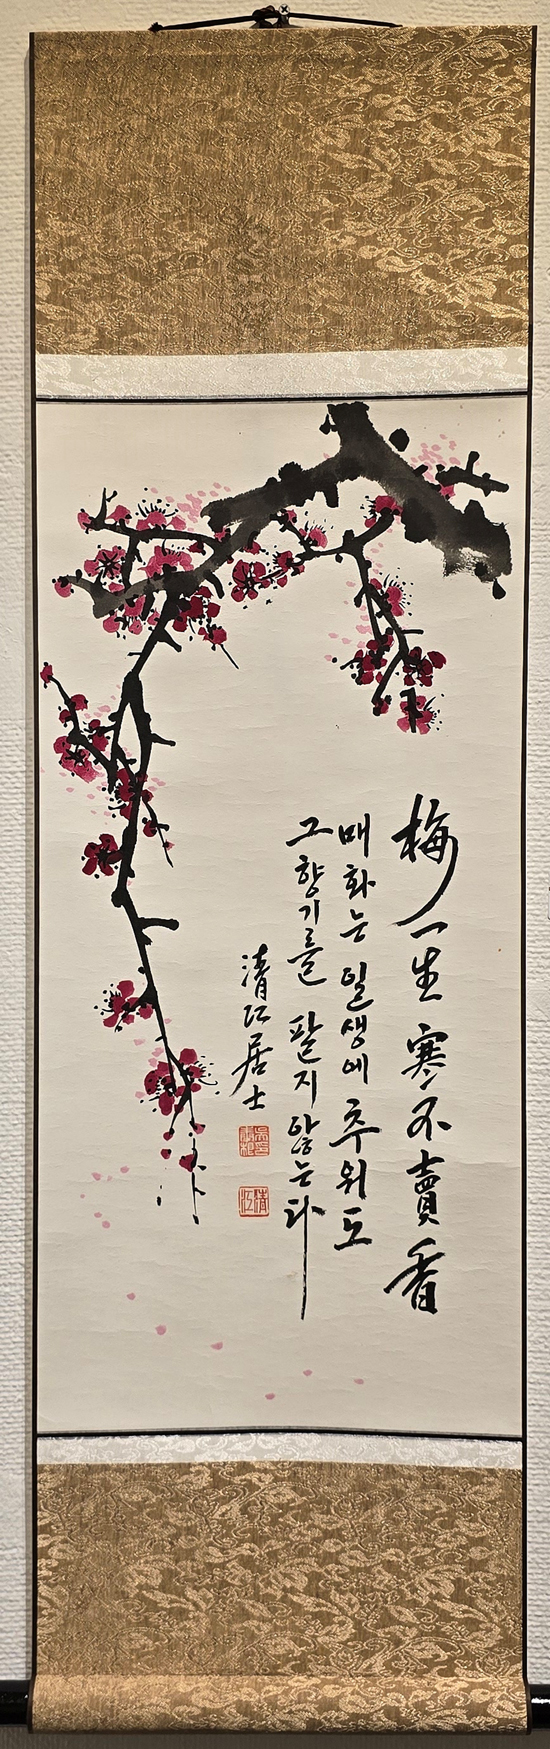 梅一生寒不賣香
매화는 일생에 추위도
그 향기를 팔지 않는다
清江居士
清江